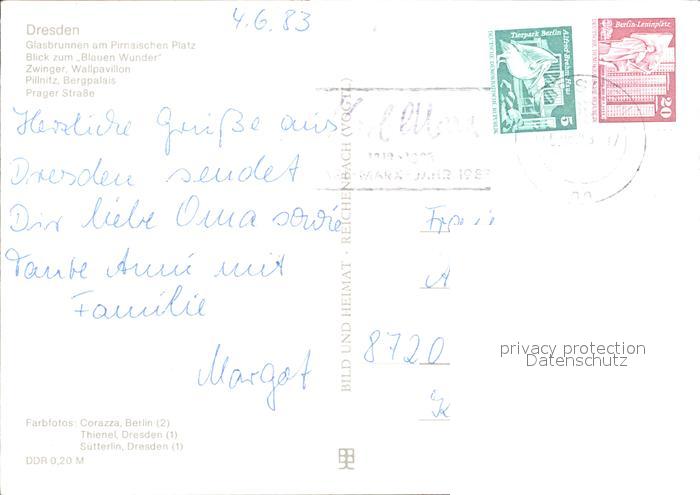 4.6.83
Dresden
Glasbrunnen am Pirnaischen Platz
Blick zum „Blauen Wunder"
Zwinger, Wallpavillon
Pillnitz, Bergpalais
Prager Straße
Herzliche Grüße aus
Dresden sendet
Dir liebe Oma sowie
Tante Anni mit
Familie
Margot
Farbfotos: Corazza, Berlin (2)
Thienel, Dresden (1)
Sütterlin, Dresden (1)
DDR 0,20 M
BILD UND HEIMAT · REICHENBACH (VOGTL)
Tierpark Berlin
Alfred-Brehm-Haus
DEUTSCHE DEMOKRATISCHE REPUBLIK
5
Berlin-Leninplatz
DEUTSCHE DEMOKRATISCHE REPUBLIK
20
Karl Marx
MARX-JAHR 1983
8720
privacy protection
Datenschutz